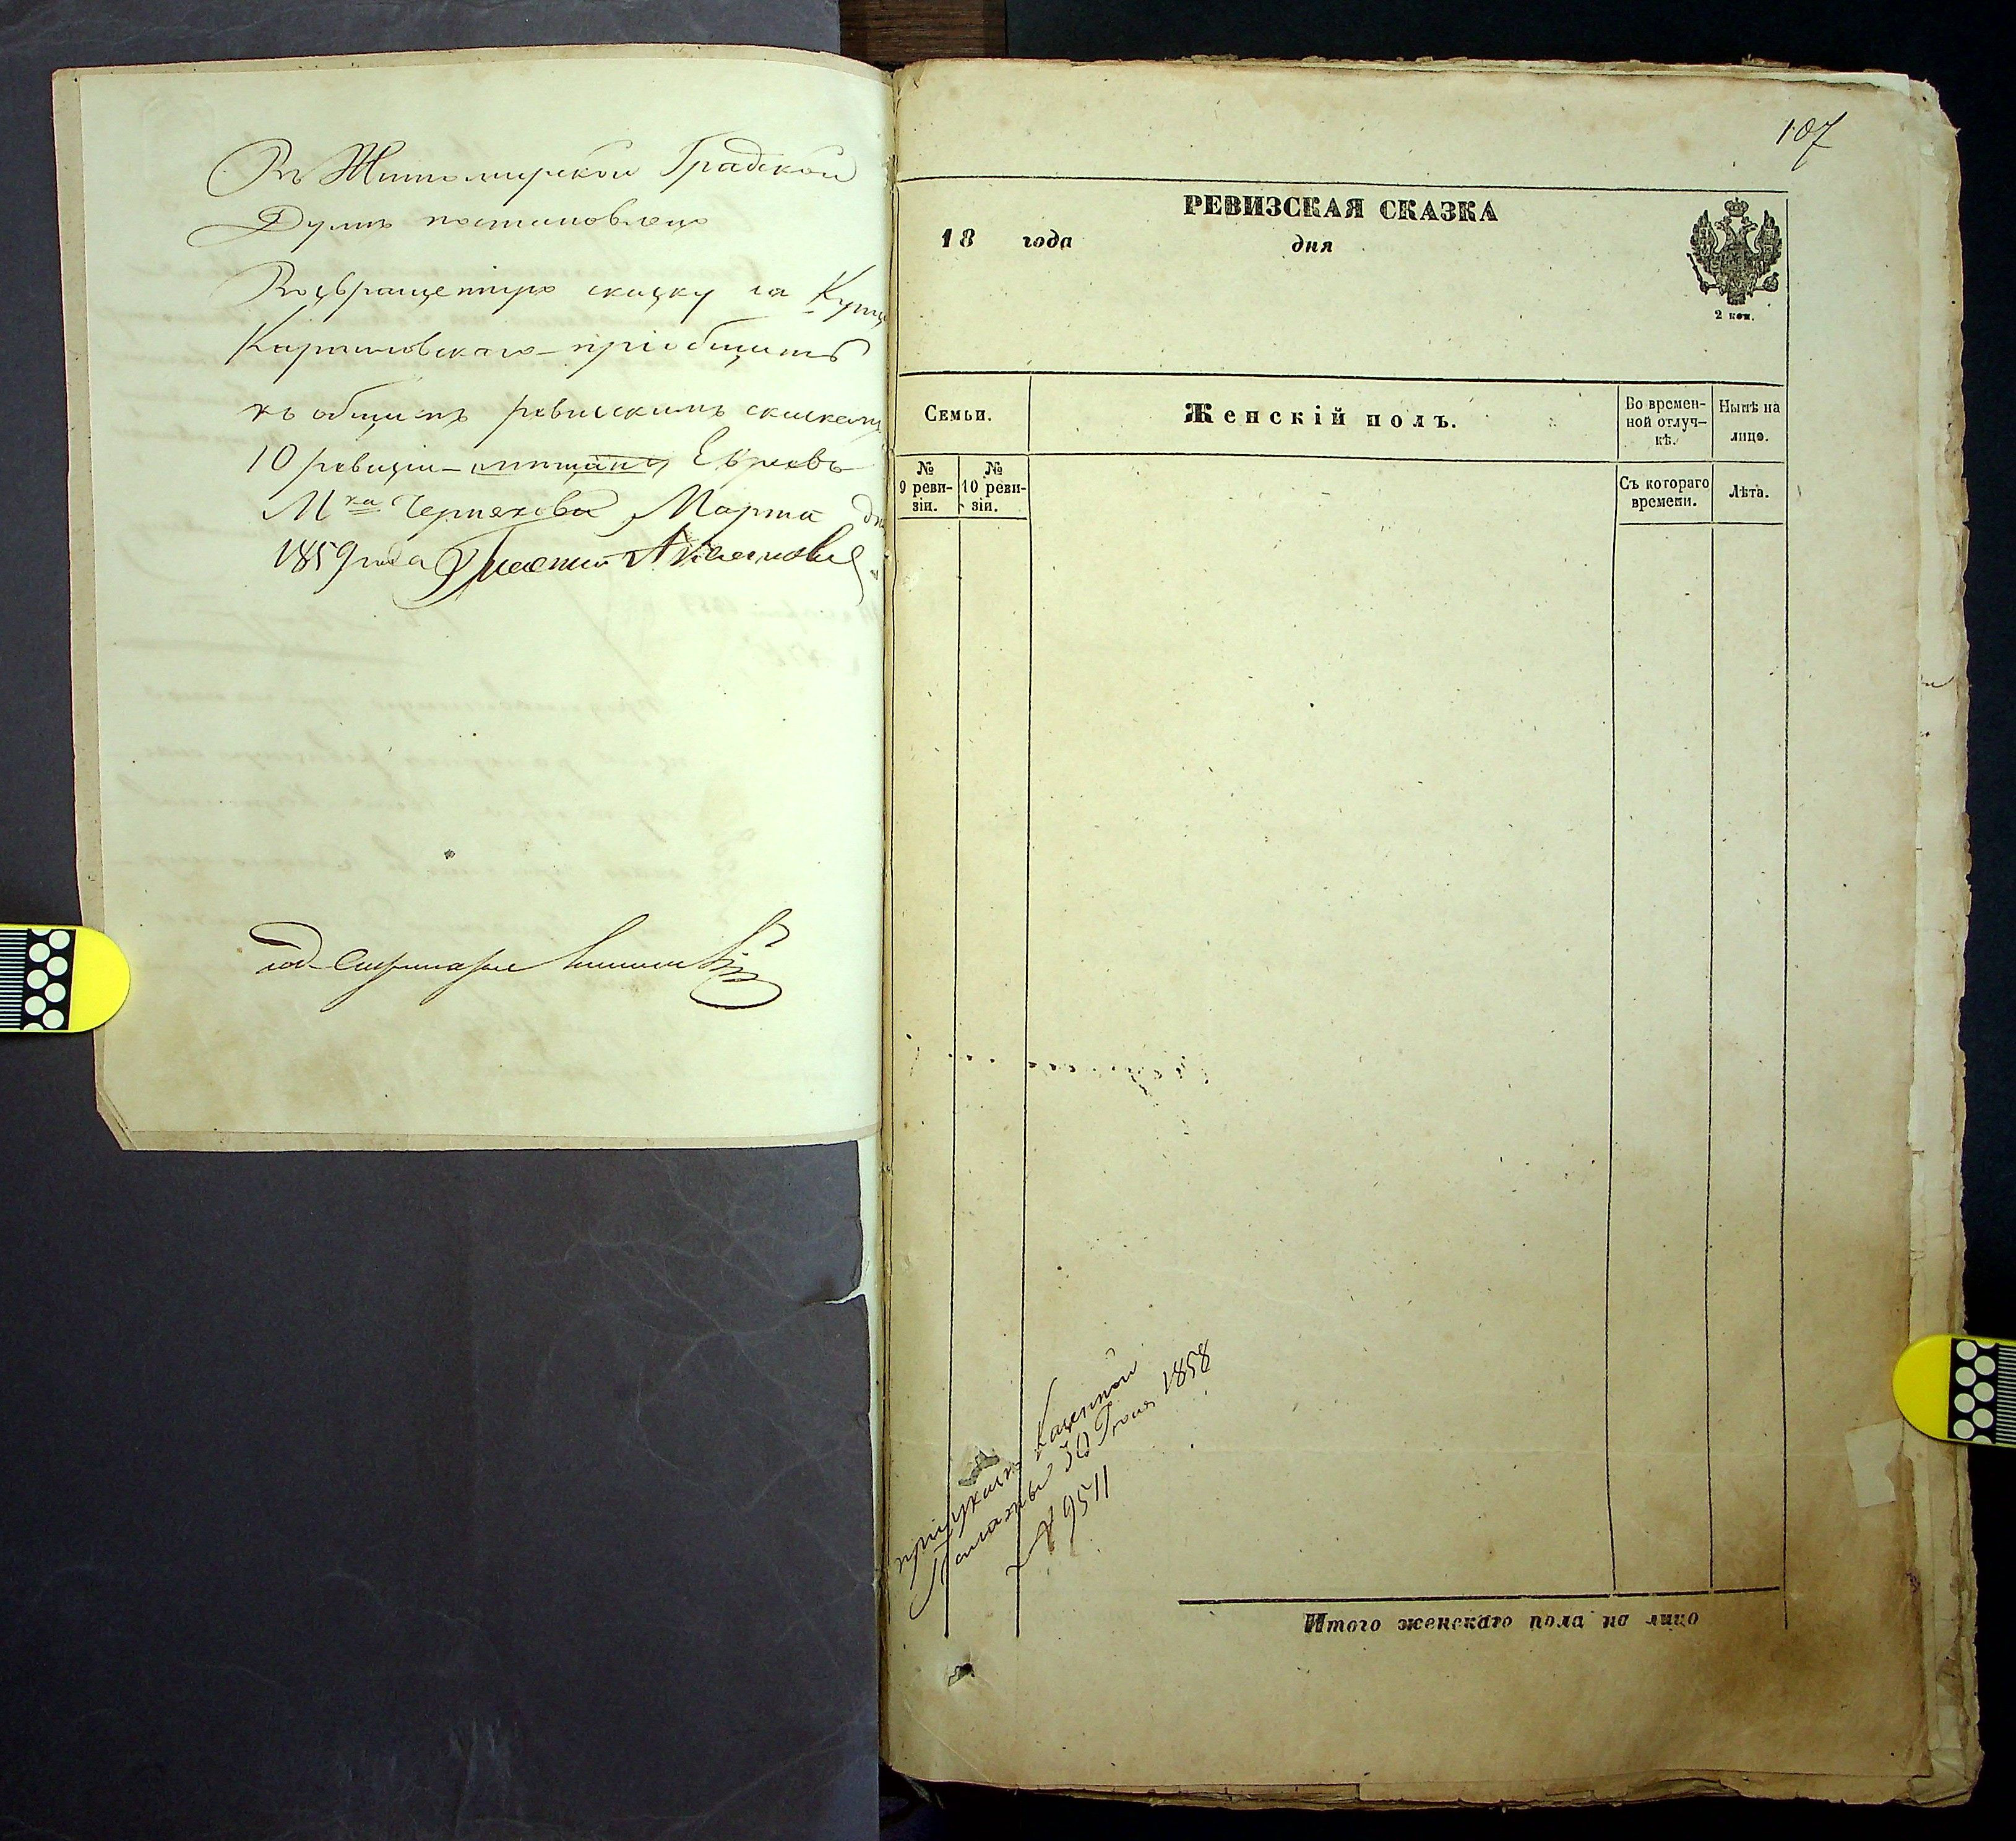 Въ Житомирской Градской
Думѣ постановлено
Возвращенную сказку на Купца
приобщить
къ общимъ ревизскимъ сказкамъ
10 ревизіи мѣщанъ Евреевъ
М-ка Черняхова Марта дня
1859 года
107
РЕВИЗСКАЯ СКАЗКА
18 года дня
2 коп.
Семьи.
Женскій полъ.
Во времен-
ной отлуч-
кѣ.
Нынѣ на
лицо.
№
9 реви-
зіи.
№
10 реви-
зіи.
Съ котораго
времени.
Лѣта.
Казенной
Палаты 30 1858
№ 9511
Итого женскаго пола на лицо